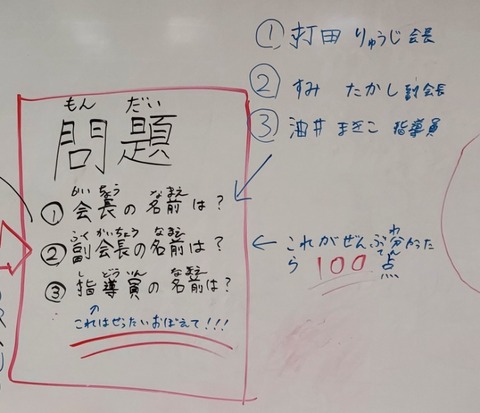 ① 打田 りゅうじ 会長
② すみ たかし 副会長
③ 油井 まさこ 指導員
もん だい
問題
かい ちょう な まえ
① 会長の名前は?
ふく かいちょう な まえ
② 副会長の名前は?
し どういん な まえ
③ 指導員の名前は?
これはぜったいおぼえて!!!
わ
← これがぜんぶ分かった
てん
ら 100点